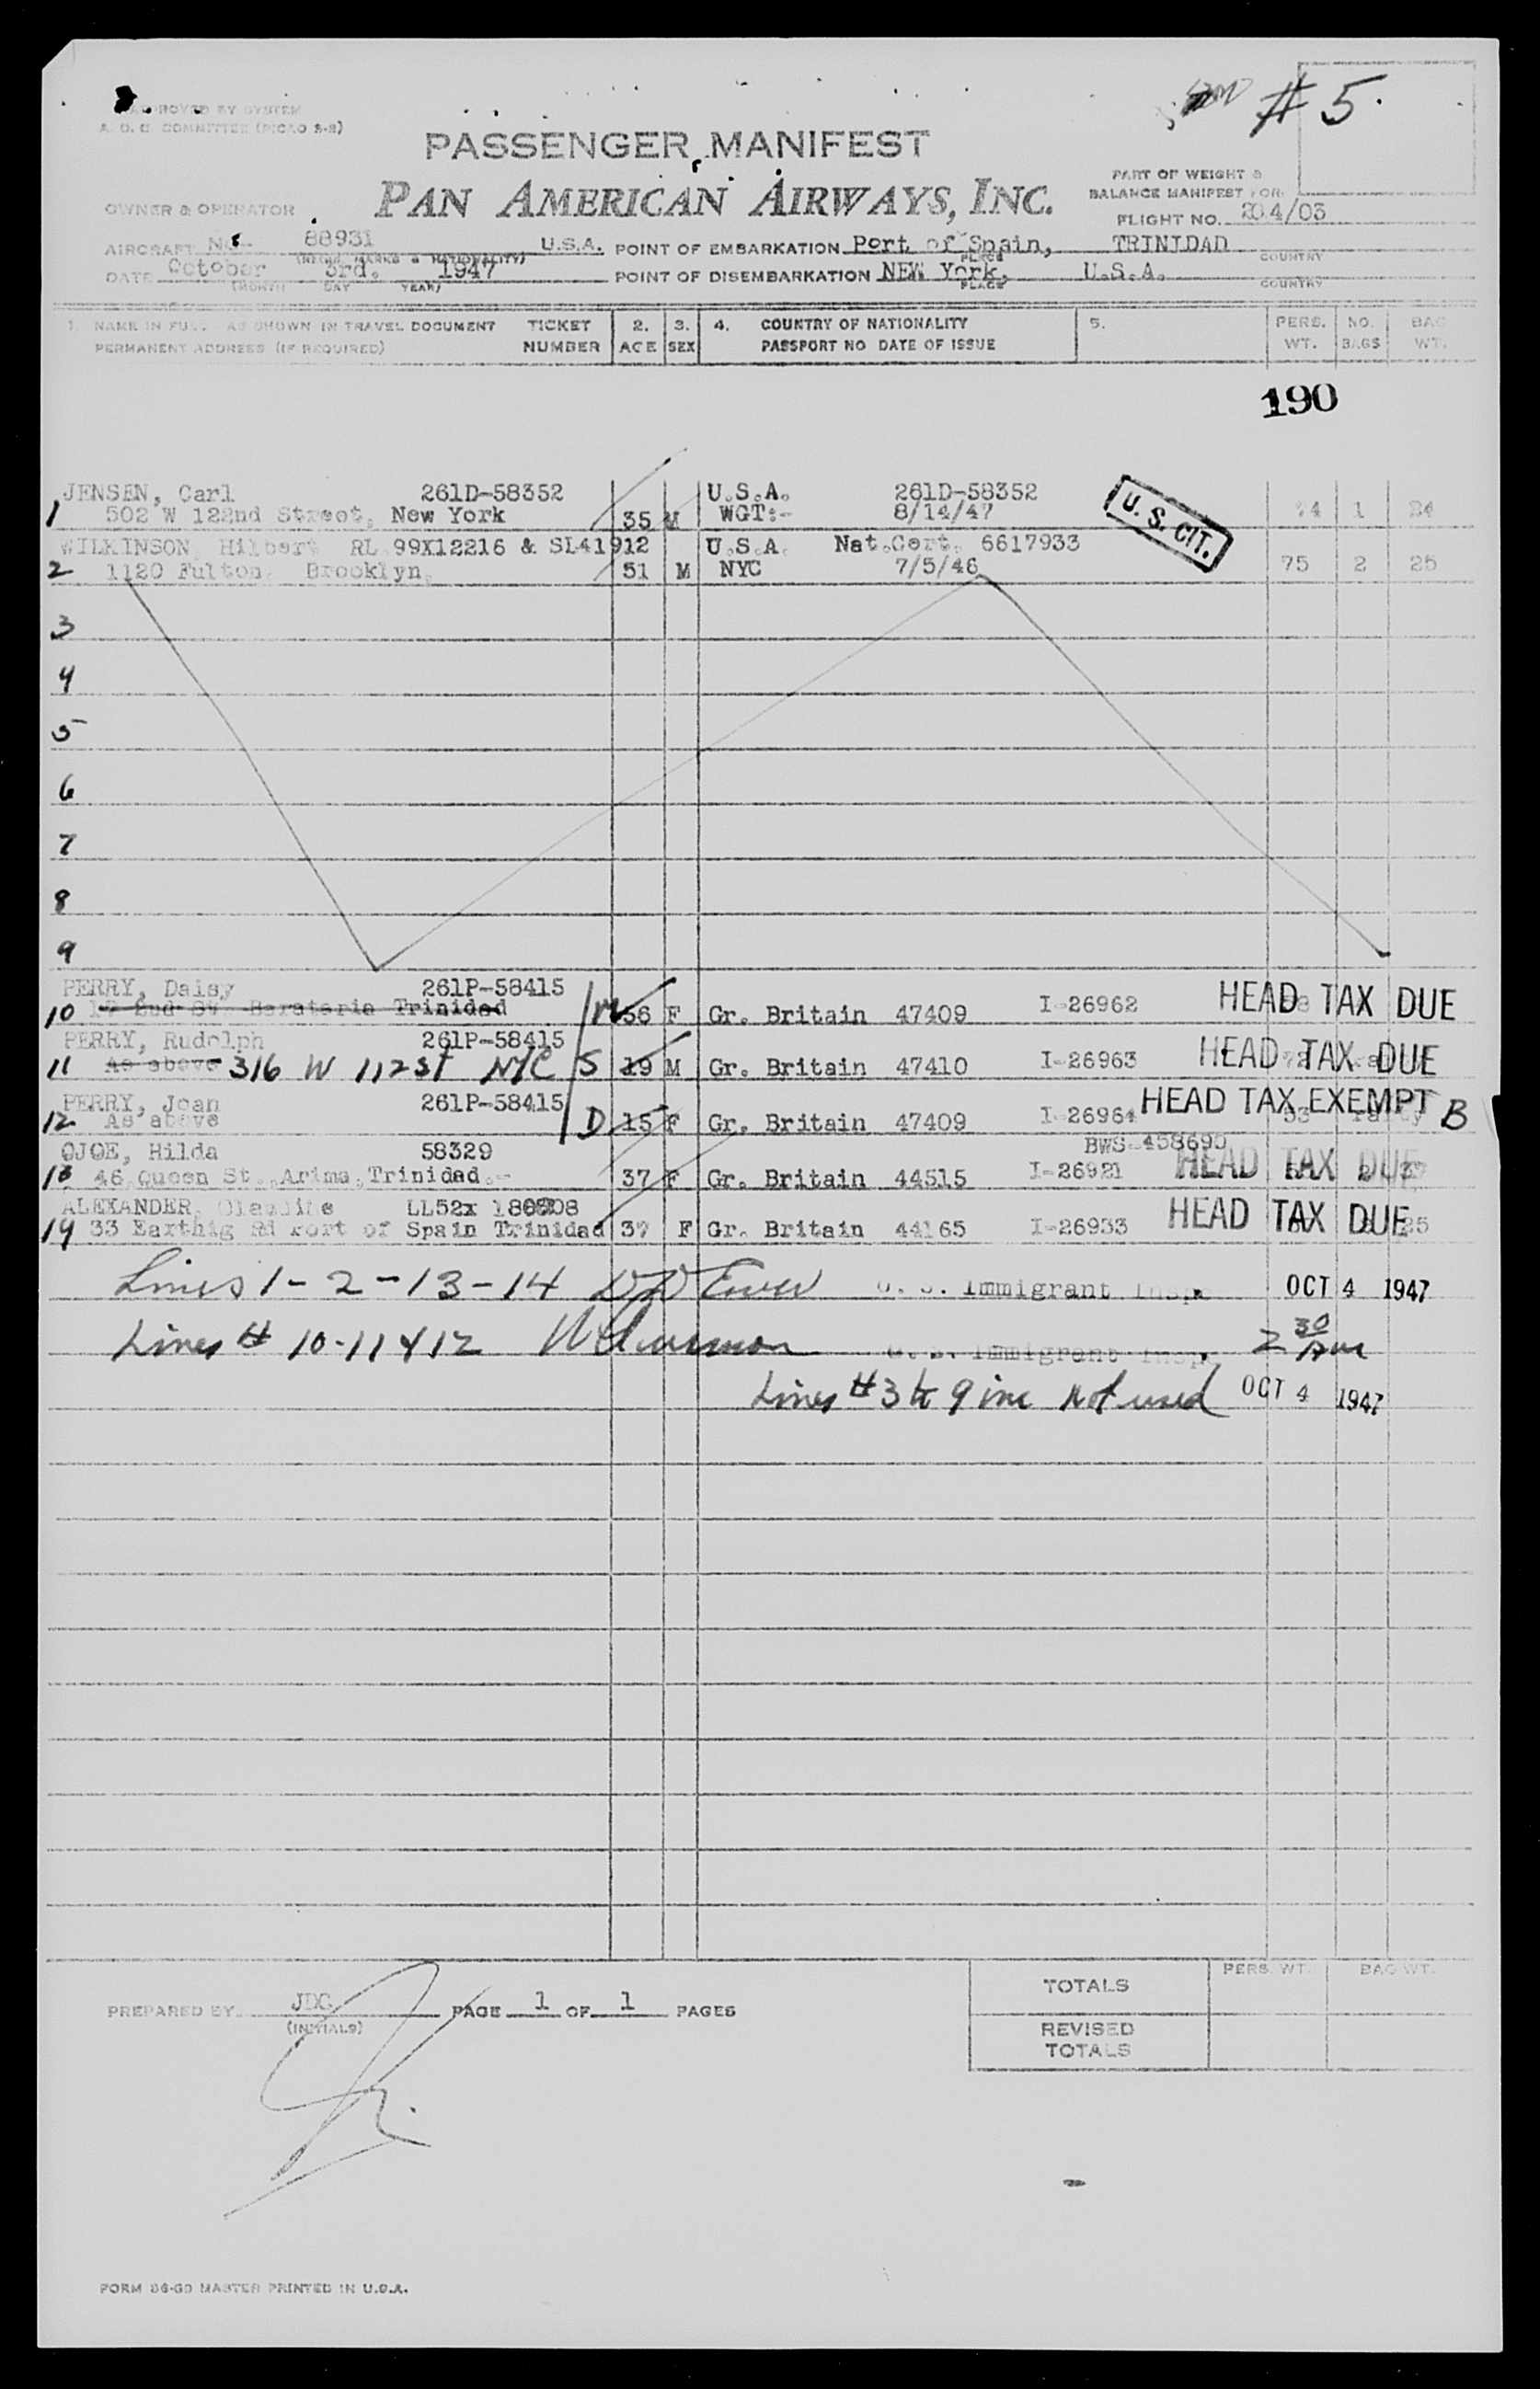 #5.
APPROVED BY SYSTEM
A. O. C. COMMITTEE (PICAO S-8)
PASSENGER MANIFEST
PAN AMERICAN AIRWAYS, INC.
PART OF WEIGHT &
BALANCE MANIFEST FOR
OWNER & OPERATOR
FLIGHT NO. 204/03
AIRCRAFT No. 88931 U.S.A. POINT OF EMBARKATION Port of Spain, TRINIDAD
(REGIS. MARKS & NATIONALITY) PLACE COUNTRY
DATE October 3rd. 1947 POINT OF DISEMBARKATION NEW York, U.S.A.
(MONTH DAY YEAR) PLACE COUNTRY
1. NAME IN FULL AS SHOWN IN TRAVEL DOCUMENT TICKET 2. 3. 4. COUNTRY OF NATIONALITY 5. PERS. NO. BAG
PERMANENT ADDRESS (IF REQUIRED) NUMBER AGE SEX PASSPORT NO DATE OF ISSUE WT. BAGS WT.
190
JENSEN, Carl 261D-58352 U.S.A. 261D-58352
1 502 W 122nd Street, New York 35 M WGT:- 8/14/47 74 1 24
U. S. CIT.
WILKINSON, Hilbert RL 99X12216 & SL41912 U.S.A. Nat.Cert. 6617933
2 1120 Fulton, Brooklyn, 51 M NYC 7/5/46 75 2 25
3
4
5
6
7
8
9
PERRY, Daisy 261P-58415
10 2nd St Barataria Trinidad M 36 F Gr. Britain 47409 I-26962 HEAD TAX DUE
PERRY, Rudolph 261P-58415
11 As above 316 W 112 st NYC S 19 M Gr. Britain 47410 I-26963 HEAD TAX DUE
PERRY, Joan 261P-58415
12 As above D 15 F Gr. Britain 47409 I-26964 HEAD TAX EXEMPT B
OJOE, Hilda 58329 BWS-458690
13 46 Queen St., Arima, Trinidad.- 37 F Gr. Britain 44515 I-26921 HEAD TAX DUE
ALEXANDER, LL52x
14 33 Rd Port of Spain Trinidad 37 F Gr. Britain 44165 I-26933 HEAD TAX DUE 25
Lines 1-2-13-14 U. S. Immigrant Insp. OCT 4 1947
Lines # 10-11 & 12 U. S. Immigrant Insp. 2 30 AM
Lines #3 to 9 inc Not used OCT 4 1947
TOTALS PERS. WT. BAG WT.
PREPARED BY JDG PAGE 1 OF 1 PAGES
(INITIALS)
REVISED
TOTALS
FORM 86-GD MASTER PRINTED IN U.S.A.